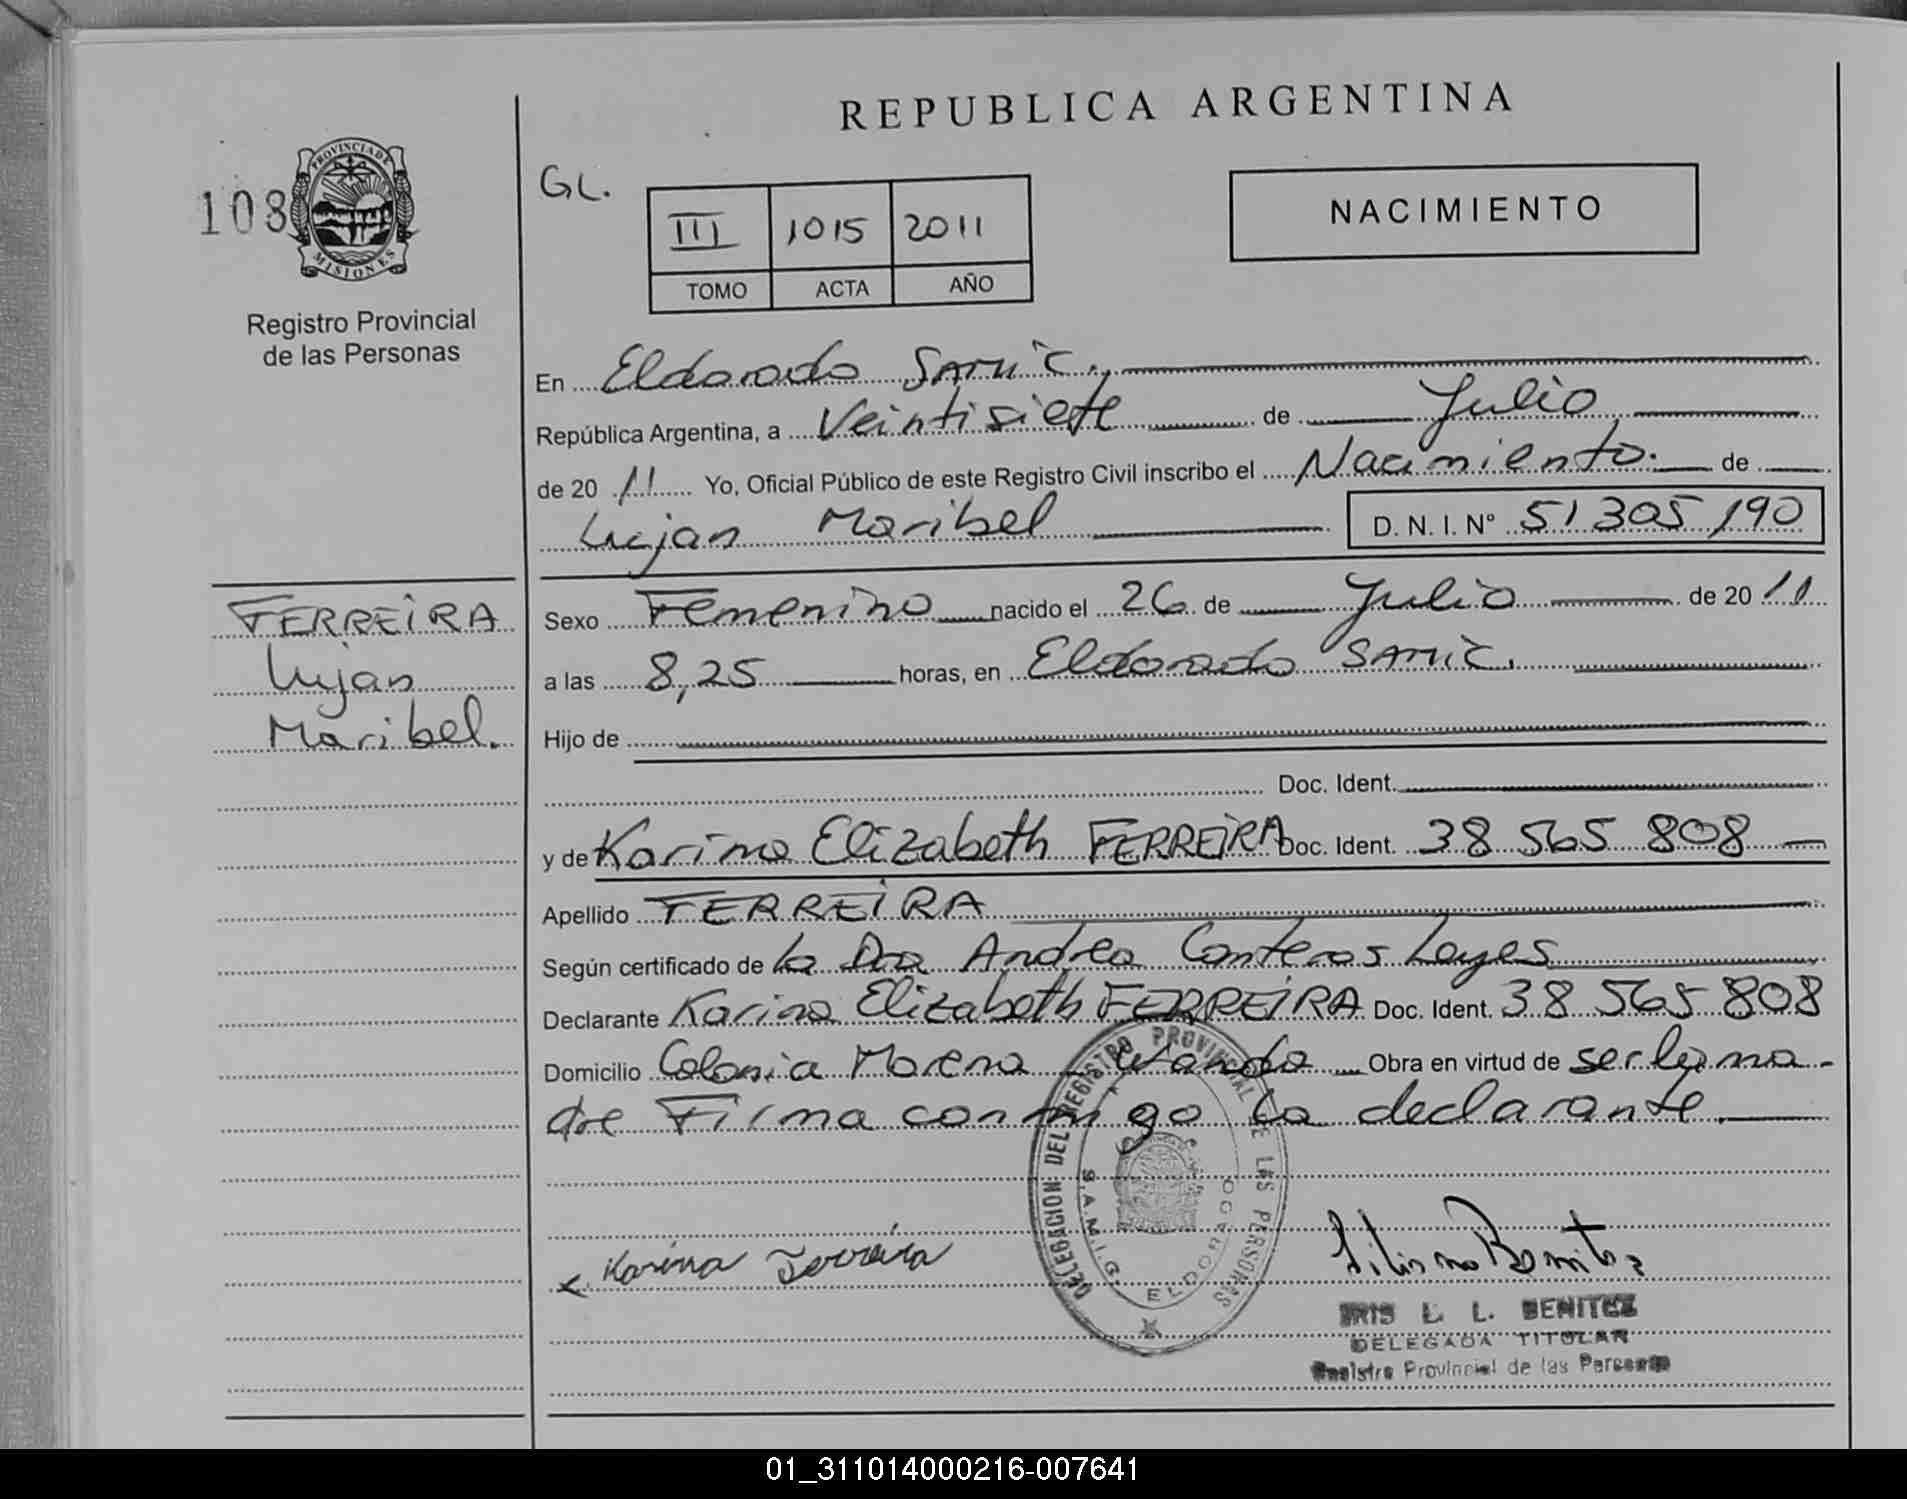 REPUBLICA ARGENTINA
108
PROVINCIA DE
MISIONES
Registro Provincial
de las Personas
GL.
III 1015 2011
TOMO ACTA AÑO
NACIMIENTO
En Eldorado SAMIC.
República Argentina, a Veintisiete de Julio
de 20 11 Yo, Oficial Público de este Registro Civil inscribo el Nacimiento. de
Lujan Maribel D. N. I. Nº 51 305 190
FERREIRA
Lujan
Maribel.
Sexo Femenino nacido el 26 de Julio de 20 11
a las 8,25 horas, en Eldorado SAMIC.
Hijo de
Doc. Ident.
y de Karina Elizabeth FERREIRA Doc. Ident. 38 565 808
Apellido FERREIRA
Según certificado de la Dra Andrea Conteras Leyes
Declarante Karina Elizabeth FERREIRA Doc. Ident. 38 565 808
Domicilio Colonia Morena Wanda Obra en virtud de ser la ma-
dre Firma conmigo la declarante.
DELEGACION DEL REGISTRO PROVINCIAL DE LAS PERSONAS
S.A.M.I.C. ELDORADO
Karina Ferreira
Benitez
IRIS L. L. BENITEZ
DELEGADA TITULAR
Registro Provincial de las Personas
01_311014000216-007641